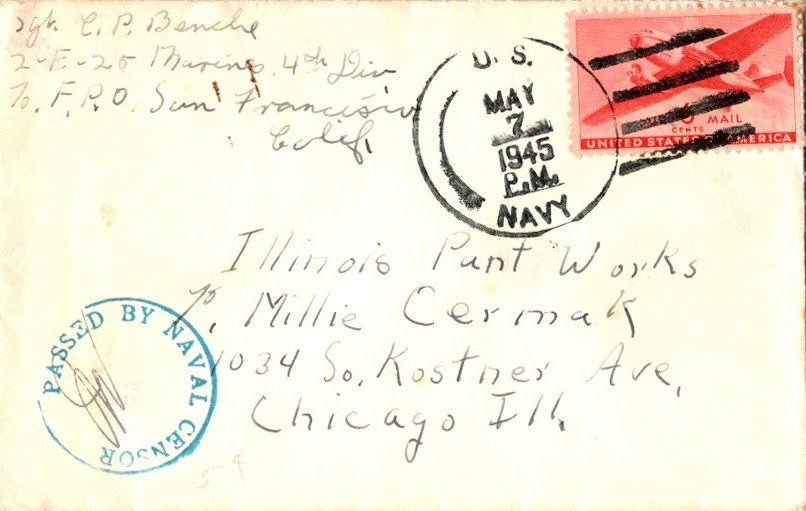 Sgt. C. P. Benche
2-E-25 Marines, 4th Div
To, F.P.O. San Francisco
Calif.
U. S.
MAY
7
1945
P.M.
NAVY
AIR MAIL
6
CENTS
UNITED STATES OF AMERICA
Illinois Pant Works
%, Millie Cermak
1034 So. Kostner Ave,
Chicago Ill.
PASSED BY NAVAL CENSOR
5¢